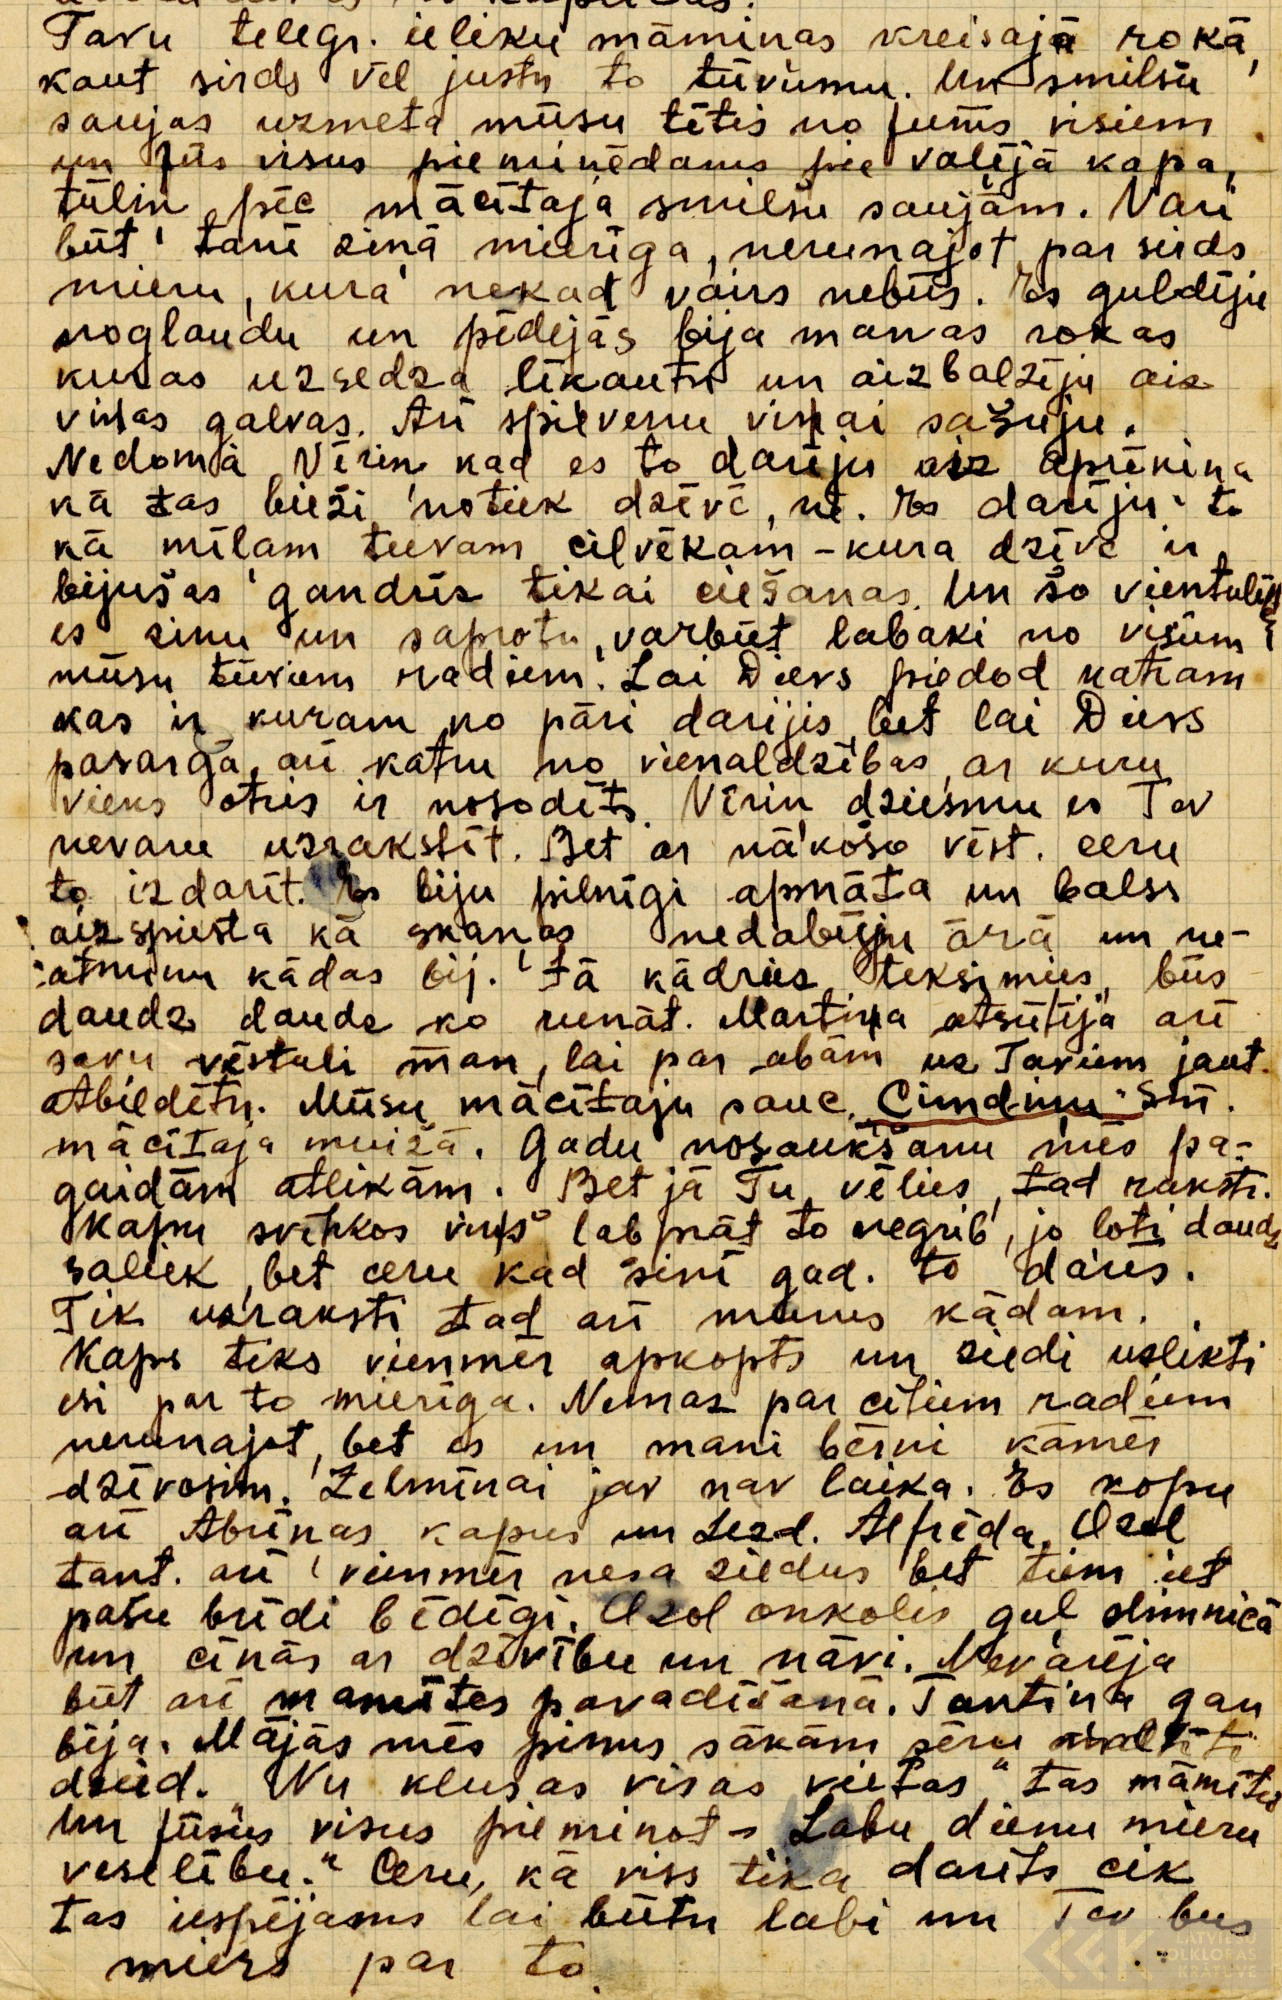 Tavu telegr. ieliku māmiņas kreisajā rokā,
kaut sirds vēl justu to tuvumu. Un smilšu
saujas uzmeta mūsu tētis no jums visiem
un jūs visus pieminēdams pie vaļējā kapa,
tūlin pēc mācītaja smilšu saujām. Vari
būt tanī ziņā mierīga, nerunajot par sirds
mieru, kura nekad vairs nebūs. Es guldīju
noglaudu un pēdejās bija manas rokas
kuras uzsedza līkautu un aizbalzīju aiz
viņas galvas. Arī spilvenu viņai sašuju.
Nedomā Vērin kad es to darīju aiz aprēķina
kā tas bieži notiek dzīvē, nē. Es darīju to
kā mīļam tuvam cilvēkam - kura dzīvē ir
bijušas gandrīz tikai ciešanas. Un šo
es zinu un saprotu, varbūt labaki no visiem
mūsu tuviem radiem. Lai Dievs piedod katram
kas ir kuram no pāri darijis, bet lai Dievs
pasargā arī katru no vienaldzības, ar kuru
viens otrs ir nosodīts. Vērin dziesmu es Tev
nevaru uzrakstīt. Bet ar nākošo vēst. ceru
to izdarīt. Es biju pilnīgi apmāta un balss
aizspiesta kā skanas nedabūju ārā un ne-
atminu kādas bij. Tā kādreiz teksimies, būs
daudz daudz ko runāt. Martiņa atsūtija arī
savu vēstuli man, lai par abām uz Taviem jaut.
atbildētu. Mūsu mācītaju sauc. Cimdiņu Sm.
mācītaja muižā. Gadu nosaukšanu mēs pa-
gaidām atlikām. Bet jā Tu vēlies, tad raksti.
Kapu svētkos viņš labprāt to negrib, jo loti daudz
saliek, bet ceru kad šinī gad. to darīs.
Tik uzraksti tad arī mums kādam.
Kaps tiks vienmēr apkopts un ziedi uzlikti
esi par to mierīga. Nemaz par citiem radiem
nerunajot, bet es un mani bērni kāmēr
dzīvosim. Zelmīnai jav nav laika. Es kopu
arī Abriņas kapus un Alfrēda, Ozol
tant. arī vienmēr nesa ziedus bet tiem iet
pašu brīdi bēdīgi. Ozol onkolis guļ slimnicā
un cīnās ar dzīvību un nāvi. Nevarēja
būt arī mamītes pavadīšanā. Tantiņa gan
bija. Mājās mēs pirms sākām sēru
dzied. "Nu klusas visas vietas" tas māmītes
Un jūsus visus pieminot - Labu dienu mieru
veselību." Ceru, kā viss tika darīts cik
tas iespējams lai būtu labi un Tev bus
miers par to.
LATVIEŠU
FOLKLORAS
KRĀTUVE